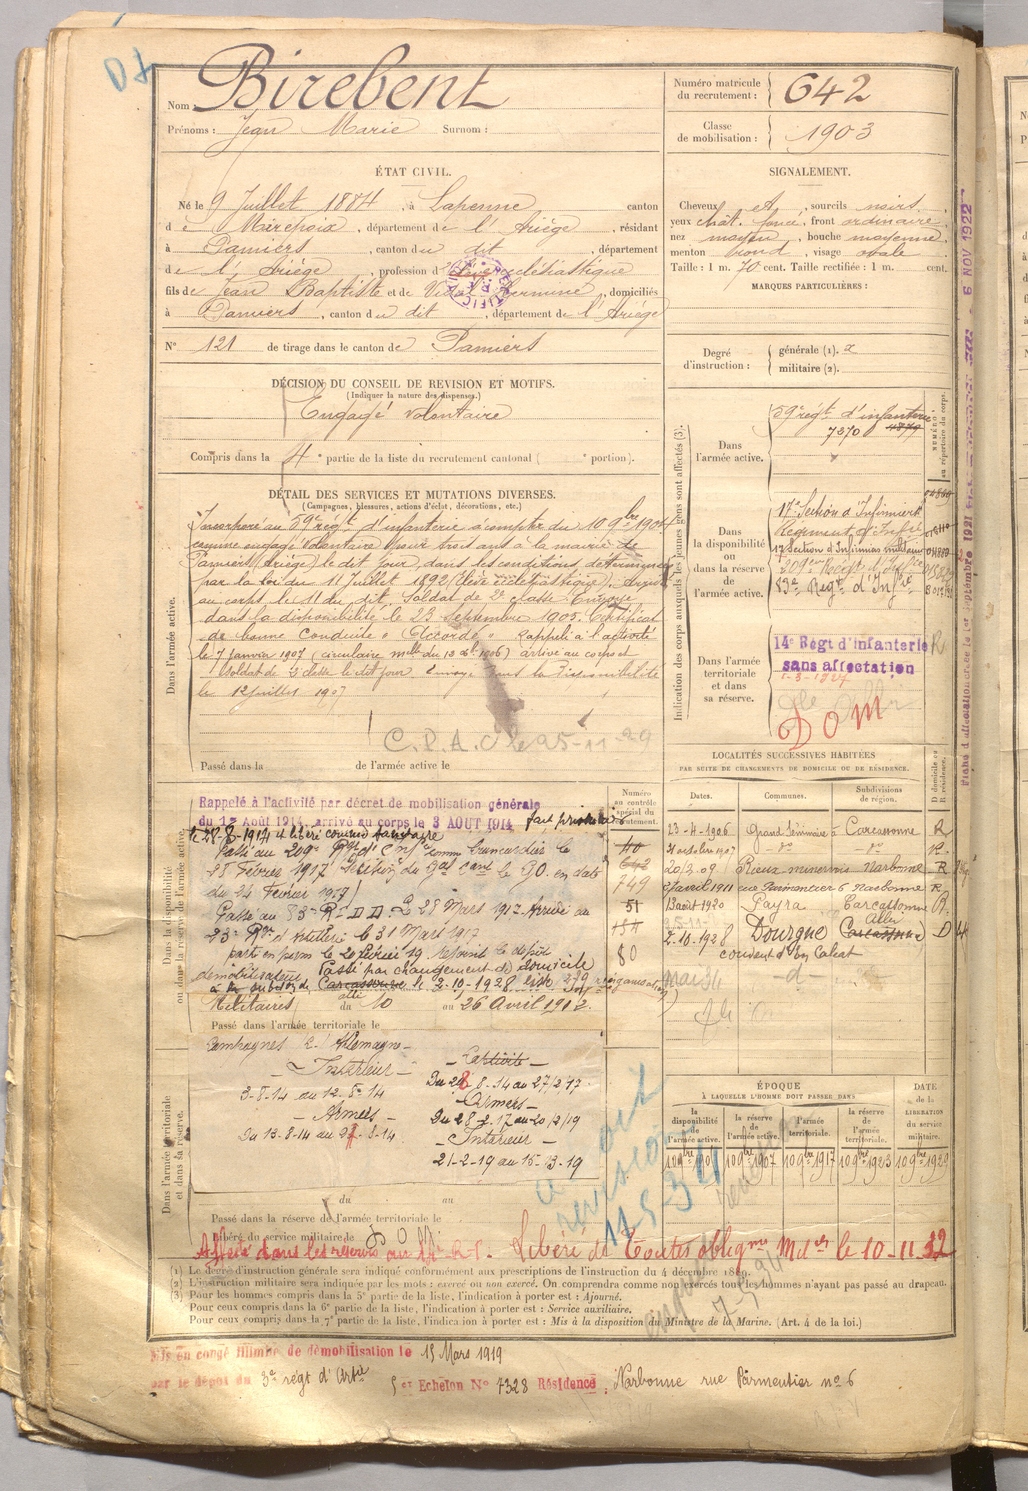 Nom : Birebent
Prénoms : Jean Marie Surnom :
Numéro matricule du recrutement : 642
Classe de mobilisation : 1903
ÉTAT CIVIL.
Né le 9 Juillet 1884, à Lapenne canton
de Mirepoix, département de l'Ariège, résidant
à Pamiers, canton du dit, département
de l'Ariège, profession d'élève ecclésiastique
fils de Jean Baptiste et de Vidal Hermine, domiciliés
à Pamiers, canton du dit, département de l'Ariège
N° 121 de tirage dans le canton de Pamiers
SIGNALEMENT.
Cheveux et, sourcils noirs
yeux chât. foncé, front ordinaire
nez moyen, bouche moyenne
menton rond, visage ovale
Taille : 1 m. 70 cent. Taille rectifiée : 1 m. cent.
MARQUES PARTICULIÈRES :
Degré d'instruction : générale (1). 2
militaire (2).
DÉCISION DU CONSEIL DE REVISION ET MOTIFS.
(Indiquer la nature des dispenses.)
Engagé volontaire
Compris dans la 4e partie de la liste du recrutement cantonal ( e portion).
DÉTAIL DES SERVICES ET MUTATIONS DIVERSES.
(Campagnes, blessures, actions d'éclat, décorations, etc.)
Dans l'armée active.
Incorporé au 59e régt d'infanterie à compter du 10 9bre 1904
comme engagé volontaire pour trois ans à la mairie de
Pamiers (Ariège) le dit jour, dans les conditions déterminées
par la loi du 11 Juillet 1892 (élève ecclésiastique). Arrivé
au corps le 11 du dit. Soldat de 2e classe. Envoyé
dans la disponibilité le 23 septembre 1905. Certificat
de bonne conduite "Accordé". Rappelé à l'activité
le 7 janvier 1907 (circulaire mlle du 1906) arrivé au corps et
Soldat de 2e classe le dit jour. Envoyé dans la disponibilité
le 12 juillet 1907
C.P.A.O le 25-11-29
Passé dans la de l'armée active le
Dans la disponibilité ou dans la réserve de l'armée active.
Rappelé à l'activité par décret de mobilisation générale
du 1er Août 1914, arrivé au corps le 3 AOUT 1914 fait prisonnier
le 28-8-1914 et libéré comme sanitaire
Passé au 209e Rgt d'Infie comme brancardier le
28 Février 1917 Décision du Gal Cant le G.Q. en date
du 24 Février 1917
Passé au 83e R.I.D.D. le 28 Mars 1917. Arrivé au
23e Rgt d'Artillerie le 31 Mars 1917
parti en perm le 20 février 19 rejoint le dépôt
démobilisateur. Passé par changement de domicile
à la subdon de Carcassonne Albi le 2-10-1928 liste
Militaires du 10 au 26 Avril 1912.
Passé dans l'armée territoriale le
Numéro au contrôle spécial du recrutement.
10
642
749
51
151
80
Dans l'armée territoriale et dans sa réserve.
Campagnes c. Allemagne
Intérieur
3-8-14 au 12-8-14
Armées
Du 13-8-14 au 27-8-14
Captivité
Du 28 8-14 au 27/2/17
Armées
Du 28-2-17 au 20/2/19
Intérieur
21-2-19 au 15-3-19
du au
Passé dans la réserve de l'armée territoriale le
Libéré du service militaire le
Affecté dans les réserves au R.I. Libéré de Toutes obligons Mileres le 10-11-32
Indication des corps auxquels les jeunes gens sont affectés (3).
NUMÉRO au répertoire du corps.
Dans l'armée active.
59e régt d'infanterie
7370 4879
Dans la disponibilité ou dans la réserve de l'armée active.
17e Section d'Infirmiers
Régiment d'Infie
17 Section d'Infirmiers militaires
209e Régt d'Infie
83e Régt d'Infie
Dans l'armée territoriale et dans sa réserve.
14e Régt d'infanterie R
sans affectation
DOM
Fiche d'affectation créée le 1er septembre 1921
6 NOV 1922
LOCALITÉS SUCCESSIVES HABITÉES
PAR SUITE DE CHANGEMENTS DE DOMICILE OU DE RÉSIDENCE.
Dates. Communes. Subdivisions de région. D domicile ou R résidence.
23-4-1906 Grand Séminaire à Carcassonne R
21 octobre 1907 -do- -do- R
20/2/09 Rieux minervois Narbonne R
avril 1911 rue Parmentier 6 Narbonne R
13 août 1920 Payra Carcassonne R
2-10-1928 Dourgne Carcassonne Albi D
couvent d'en Calcat
Mai 34 -d-
ÉPOQUE
À LAQUELLE L'HOMME DOIT PASSER DANS
la disponibilité de l'armée active. la réserve de l'armée active. l'armée territoriale. la réserve de l'armée territoriale.
DATE de la LIBÉRATION du service militaire.
10 9bre 190 10 9bre 1907 10 9bre 1917 10 9bre 1923 10 9bre 1929
(1) Le degré d'instruction générale sera indiqué conformément aux prescriptions de l'instruction du 4 décembre 1889.
(2) L'instruction militaire sera indiquée par les mots : exercé ou non exercé. On comprendra comme non exercés tous les hommes n'ayant pas passé au drapeau.
(3) Pour les hommes compris dans la 5e partie de la liste, l'indication à porter est : Ajourné.
Pour ceux compris dans la 6e partie de la liste, l'indication à porter est : Service auxiliaire.
Pour ceux compris dans la 7e partie de la liste, l'indication à porter est : Mis à la disposition du Ministre de la Marine. (Art. 4 de la loi.)
Mis en congé illimité de démobilisation le 15 Mars 1919
par le dépôt du 3e régt d'Artie 5e Echelon N° 7328 Résidence : Narbonne rue Parmentier n° 6